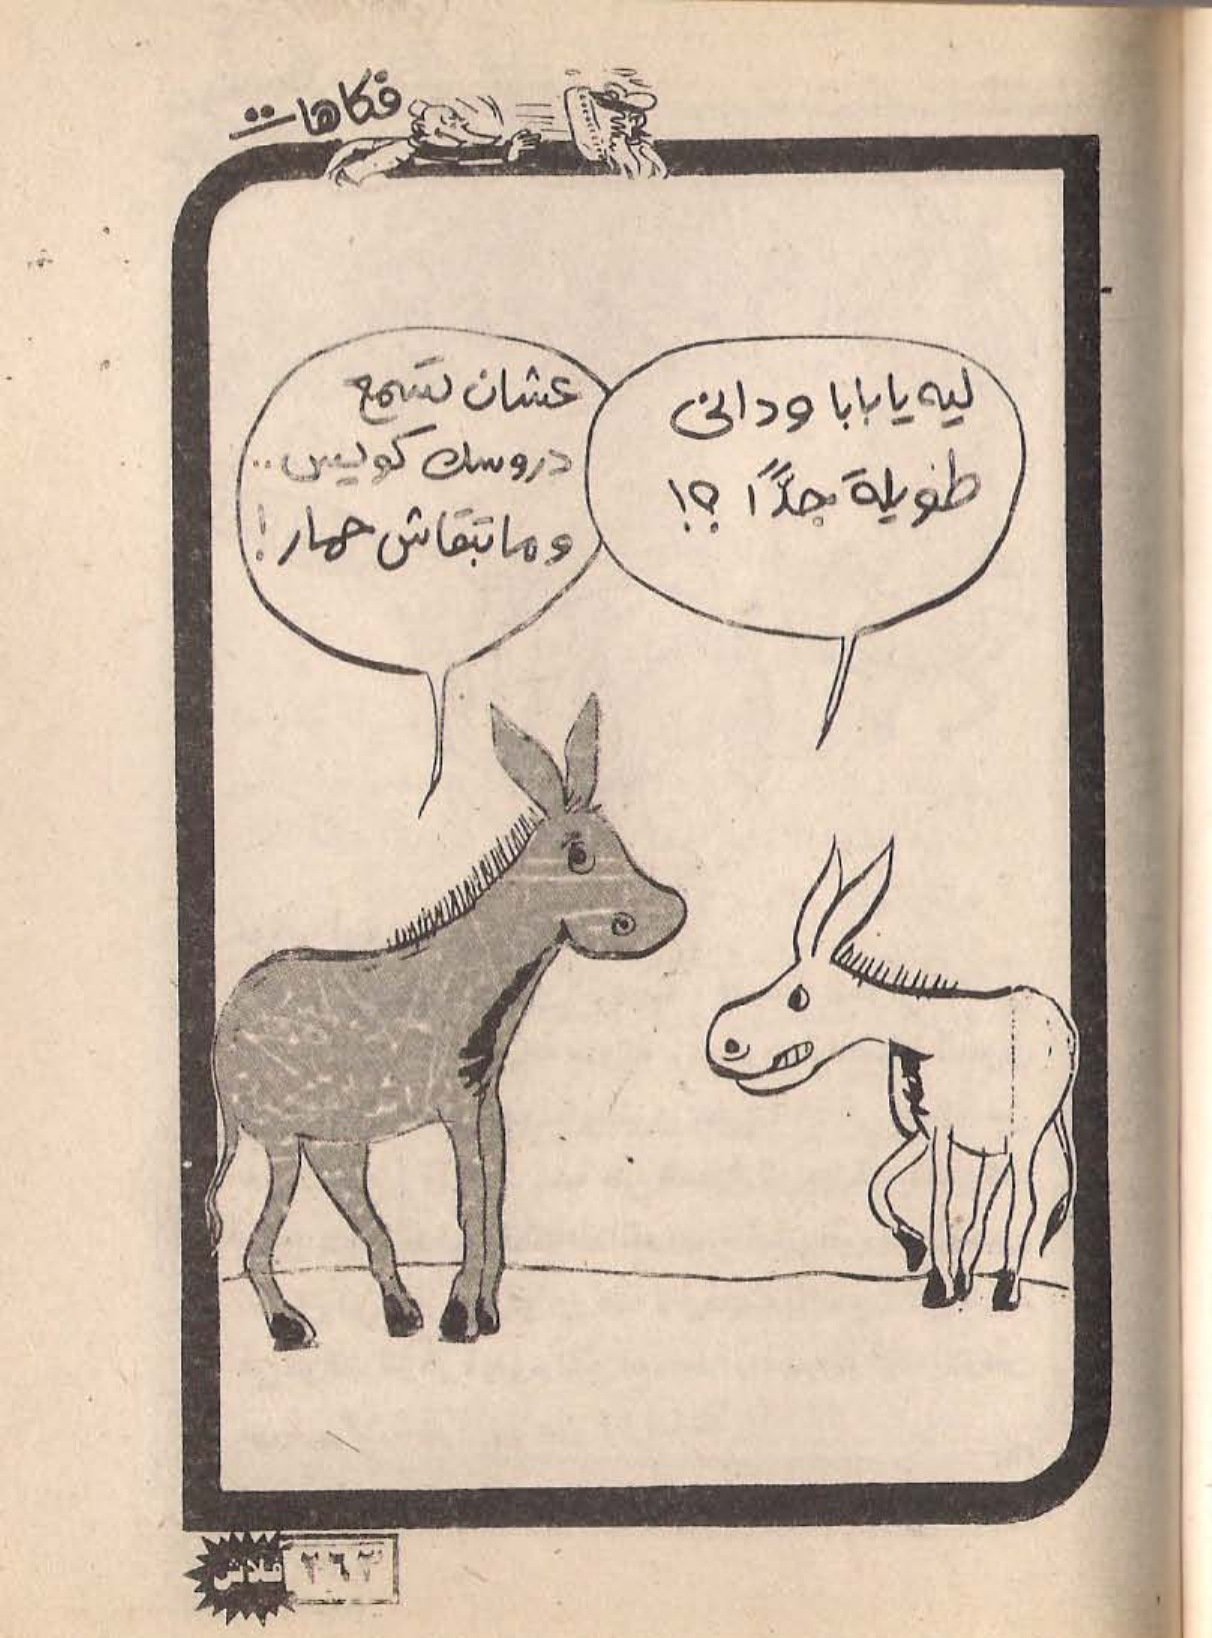 فكاهات
ليه يا بابا وداني
طويلة جدًا ؟!
عشان تسمع
دروسك كويس..
وما تبقاش حمار !
فلاش
٢٦٣